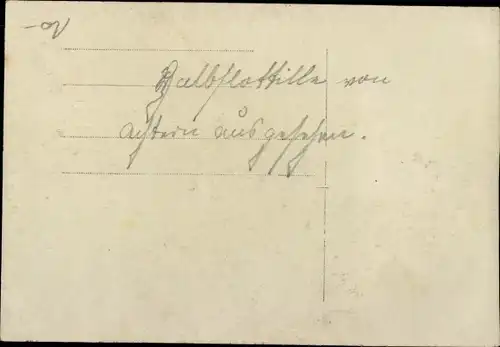 Halbflottille von
achtern ausgesehen.